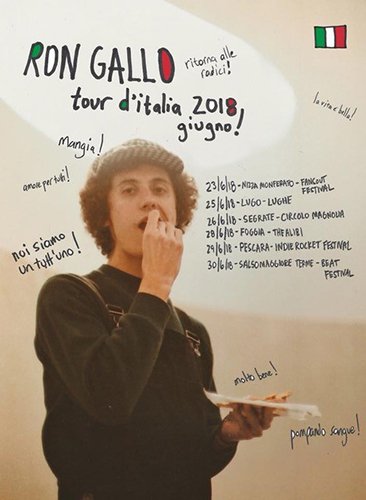 RON GALLO
ritorna alle
radici!
tour d'italia 2018,
giugno!
la vita è bella!
mangia!
amore per tutti!
23/6/18 - NIZZA MONFERATO - FANGOUT
FESTIVAL
25/6/18 - LUGO - LUGHE
26/6/18 - SEGRATE - CIRCOLO MAGNOLIA
28/6/18 - FOGGIA - THE ALIBI
29/6/18 - PESCARA - INDIE ROCKET FESTIVAL
30/6/18 - SALSOMAGGIORE TERME - BEAT
FESTIVAL
noi siamo
un tutt'uno!
molto bene!
pompando sangue!